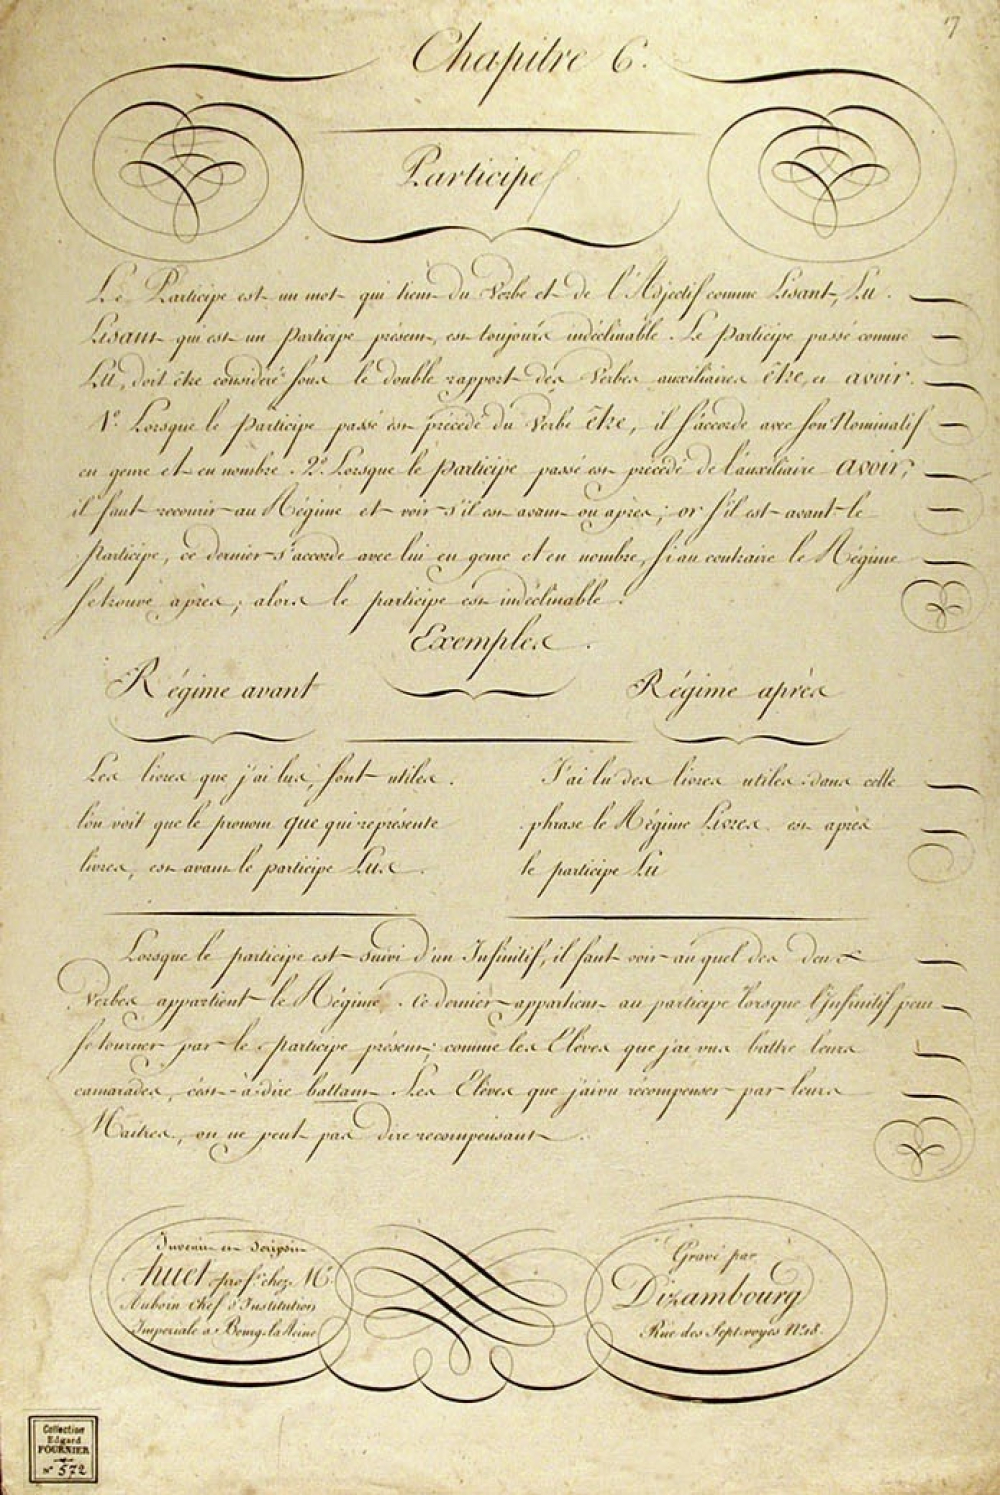 7
Chapitre 6.
Participe
Le Participe est un mot qui tient du Verbe et de l'Adjectif comme Lisant, Lu.
Lisant qui est un Participe présent, est toujours indéclinable. Le Participe passé comme
Lu, doit être considéré sous le double rapport des Verbes auxiliaires être, et avoir.
1º. Lorsque le participe passé est précédé du Verbe être, il s'accorde avec son Nominatif
en genre et en nombre. 2º. Lorsque le participe passé est précédé de l'auxiliaire avoir,
il faut recourir au Régime et voir s'il est avant ou après; or s'il est avant le
Participe, ce dernier s'accorde avec lui en genre et en nombre, si au contraire le Régime
se trouve après; alors le participe est indéclinable.
Exemples.
Régime avant
Régime après
Les livres que j'ai lus, sont utiles.
l'on voit que le pronom que qui représente
livres, est avant le participe Lus.
J'ai lu des livres utiles: dans cette
phrase le Régime Livres est après
le participe Lu
Lorsque le participe est suivi d'un Infinitif, il faut voir auquel des deux
Verbes appartient le Régime. Ce dernier appartient au participe lorsque l'Infinitif peut
se tourner par le participe présent; comme les Elèves que j'ai vus battre leurs
camarades, c'est-à-dire battant. Les Elèves que j'ai vu récompenser par leurs
Maitres, on ne peut pas dire recompensant.
Invenit et Scripsit
huet prof.r chez Mr.
Auboin Chef d'Institution
Imperiale a Bourg-la-Reine
Gravé par
Dizambourg
Rue des Sept-voyes Nº 18.
Collection
Edgard
FOURNIER
Nº 572